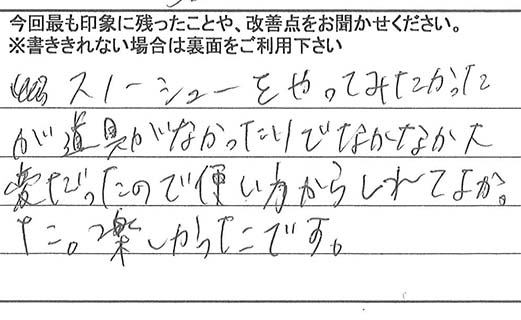 今回最も印象に残ったことや、改善点をお聞かせください。
※書ききれない場合は裏面をご利用下さい
スノーシューをやってみたかった
が道具がなかったりでなかなか大
変だったので使い方からしれてよかっ
た。楽しかったです。